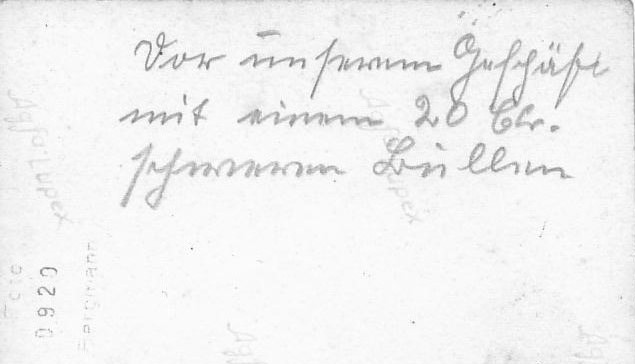 Vor unserem Geschäft
mit einem 20 Ctr.
schweren Bullen
Agfa Lupex
Agfa Lupex
Foto
0920
Bergmann